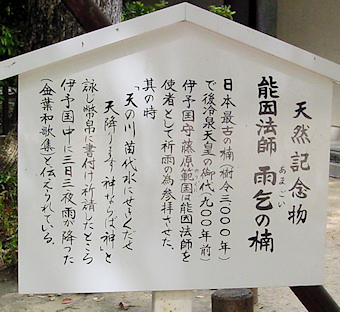 天然記念物
能因法師 雨乞の楠
あまごい
日本最古の楠(樹令三〇〇〇年)
で後冷泉天皇の御代(九〇〇年前)
伊予国守藤原範国は能因法師を
使者として祈雨の為参拝させた、
其の時
「天の川 苗代水にせきくだせ
天降ります 神ならば神」と
詠じ幣帛に書付け祈請したところ
伊予国中に三日三夜雨が降った
(金葉和歌集)と伝えられている。